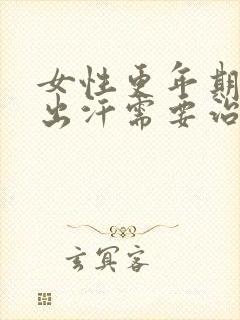 女性更年期
出汗需要治
玄冥客